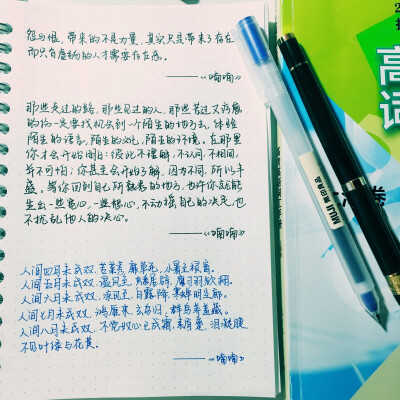 怨与恨，带来的不是力量，其实只是带来了存在
而只有虚弱的人才需要存在感。
——《喃喃》
那些走过的路，那些见过的人，那些苦过又痛愈
的伤一定要找机会到一个陌生的地方去，体验
陌生的语言，陌生的文化，陌生的环境。在那里
你才会开始明白：彼此不理解，不认同，不相同，
并不可怕；你甚至会开始了解，因为不同，所以丰
盛。等你回到自己所熟悉的地方，也许你就能
生出一些宽心，一些慈心，不动摇自己的决定，也
不扰乱他人的决心。
——《喃喃》
人间四月未成双，苦菜秀，靡草死，小暑至
人间五月未成双，温风至，蟋蟀居
人间六月未成双，凉风至，白露降，寒蝉鸣
人间七月未成双，鸿雁来，玄鸟归，群鸟养羞藏。
人间八月未成双，不觉
不同叶绿与花黄。
——《喃喃》
MUJI 無印良品
高
词